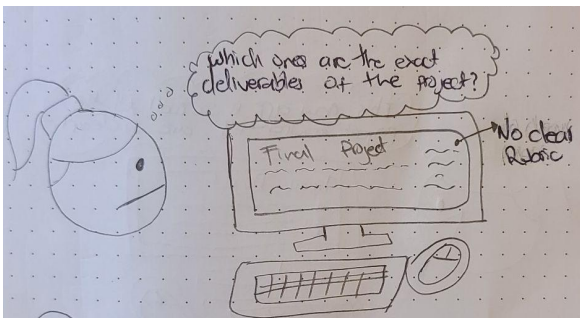 which ones are the exact
deliverables of the project?
Final Project
No clear
Rubric